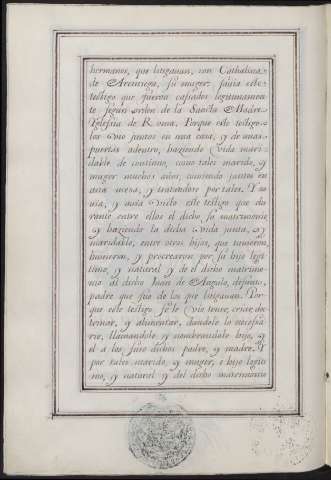 hermanos, que litigauan, con Cathalina
de Arciniega, su muger: sauia este
testigo que fueron casados legitimamente
segun orden de la Sancta Madre
Yglesia de Roma. Porque este testigo
los vio juntos en una casa, y de unas
puertas adentro, haziendo vida mari
dable de continuo, como tales marido, y
muger muchos años, comiendo juntos en
una mesa, y tratandose por tales. Y sa
uia, y auia visto este testigo que du
rante entre ellos el dicho, su matrimonio
y haziendo la dicha vida junta, y
maridable, entre otros hijos, que tuuieron,
huuieron, y procrearon por su hijo legi
timo, y natural y de el dicho matrimo
nio al dicho Juan de Angulo, difunto,
padre que fue de los que litigauan. Por
que este testigo se le vio tener, criar, do
ctrinar, y alimentar, dandole lo necessa
rio, llamandole y nombrandole hijo, y
el a los suso dichos padre, y madre. Y
por tales marido, y muger, e hijo legiti
mo, y natural y del dicho matrimonio